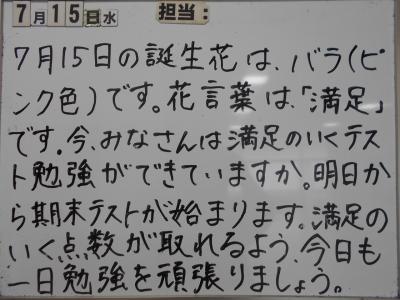 7月15日水 担当:
7月15日の誕生花は、バラ(ピ
ンク色)です。花言葉は、「満足」
です。今、みなさんは満足のいくテス
ト勉強ができていますか。明日か
ら期末テストが始まります。満足の
いく点数が取れるよう、今日も
一日勉強を頑張りましょう。